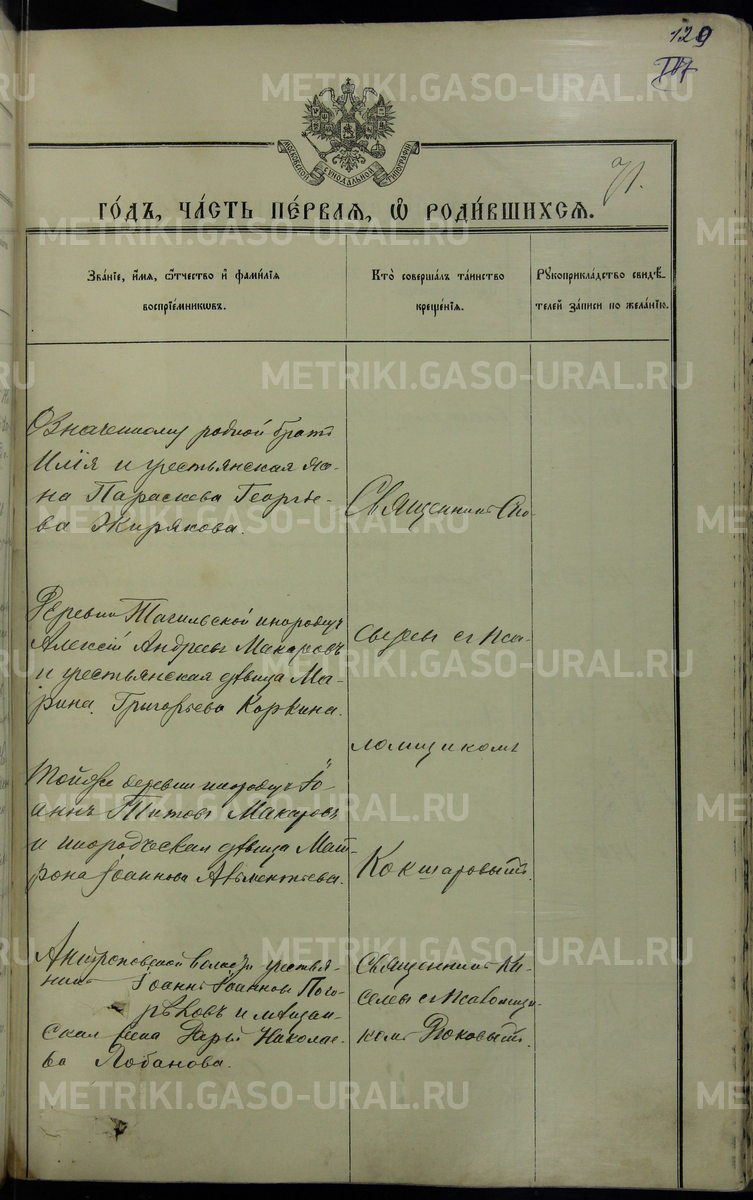 129
71.
МОСКОВСКОЙ СѴНОДАЛЬНОЙ ТИПОГРАФІИ
ГО́ДЪ, ЧА́СТЬ ПЕ́РВАЯ, Ѡ РОДИ́ВШИХСЯ.
Зва́нїе, и́мя, ѻ҆́тчество и҆ фами́лїѧ
воспрїе́мникѡвъ.
Кто̀ соверша́лъ та́инство
креще́нїѧ.
Рꙋкоприкла́дство свидѣ́-
телей за́писи по жела́нїю.
Означенному родной братъ
Илія и крестьянская же-
на Параскева Георгіе-
ва Жирякова.
Священникъ Сно-
Деревни Тагильской инородецъ
Алексій Андреевъ Макаровъ
и крестьянская дѣвица Ма-
рина Григорьева Коркина.
съ Пса-
ломщикомъ
Тойже деревни инородецъ Іо-
аннъ Титовъ Макаровъ
и инородческая дѣвица Мат-
рона Іоаннова
Кокшаровымъ.
Антроповской волости крестья-
нинъ Іоаннъ Іоанновъ Пого-
рѣловъ и мѣщан-
ская жена Дарья Николае-
ва Лобанова.
Священникъ Ки-
селевъ съ Псаломщи-
комъ
METRIKI.GASO-URAL.RU